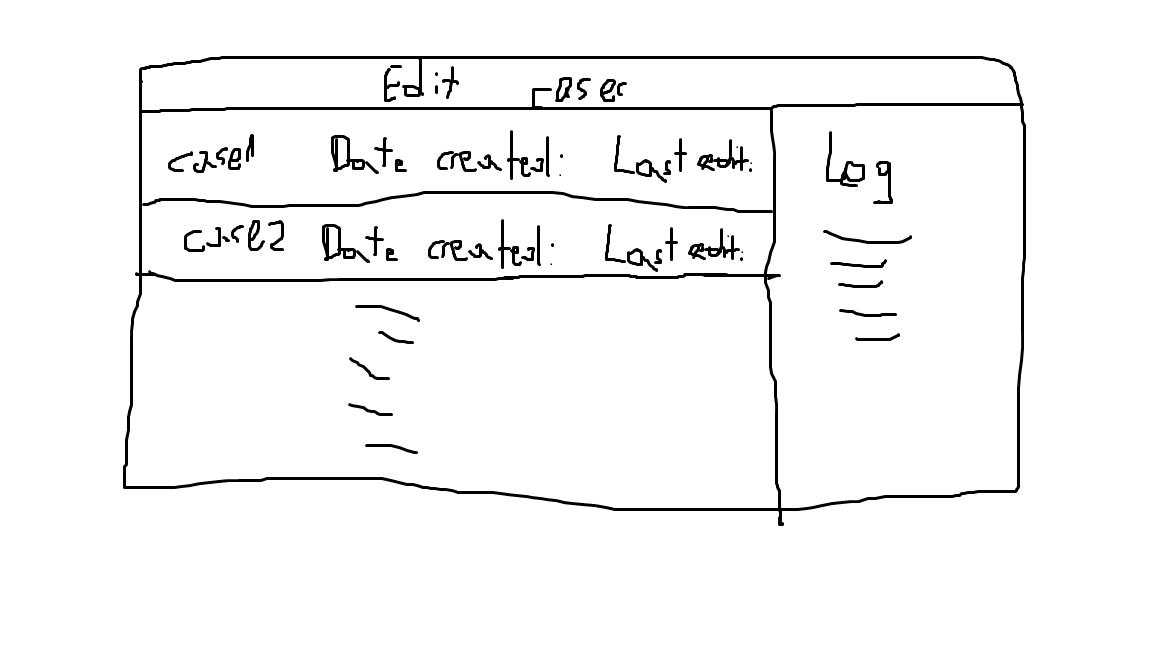 Edit caser
case1 Date created: Last edit:
case2 Date created: Last edit:
Log